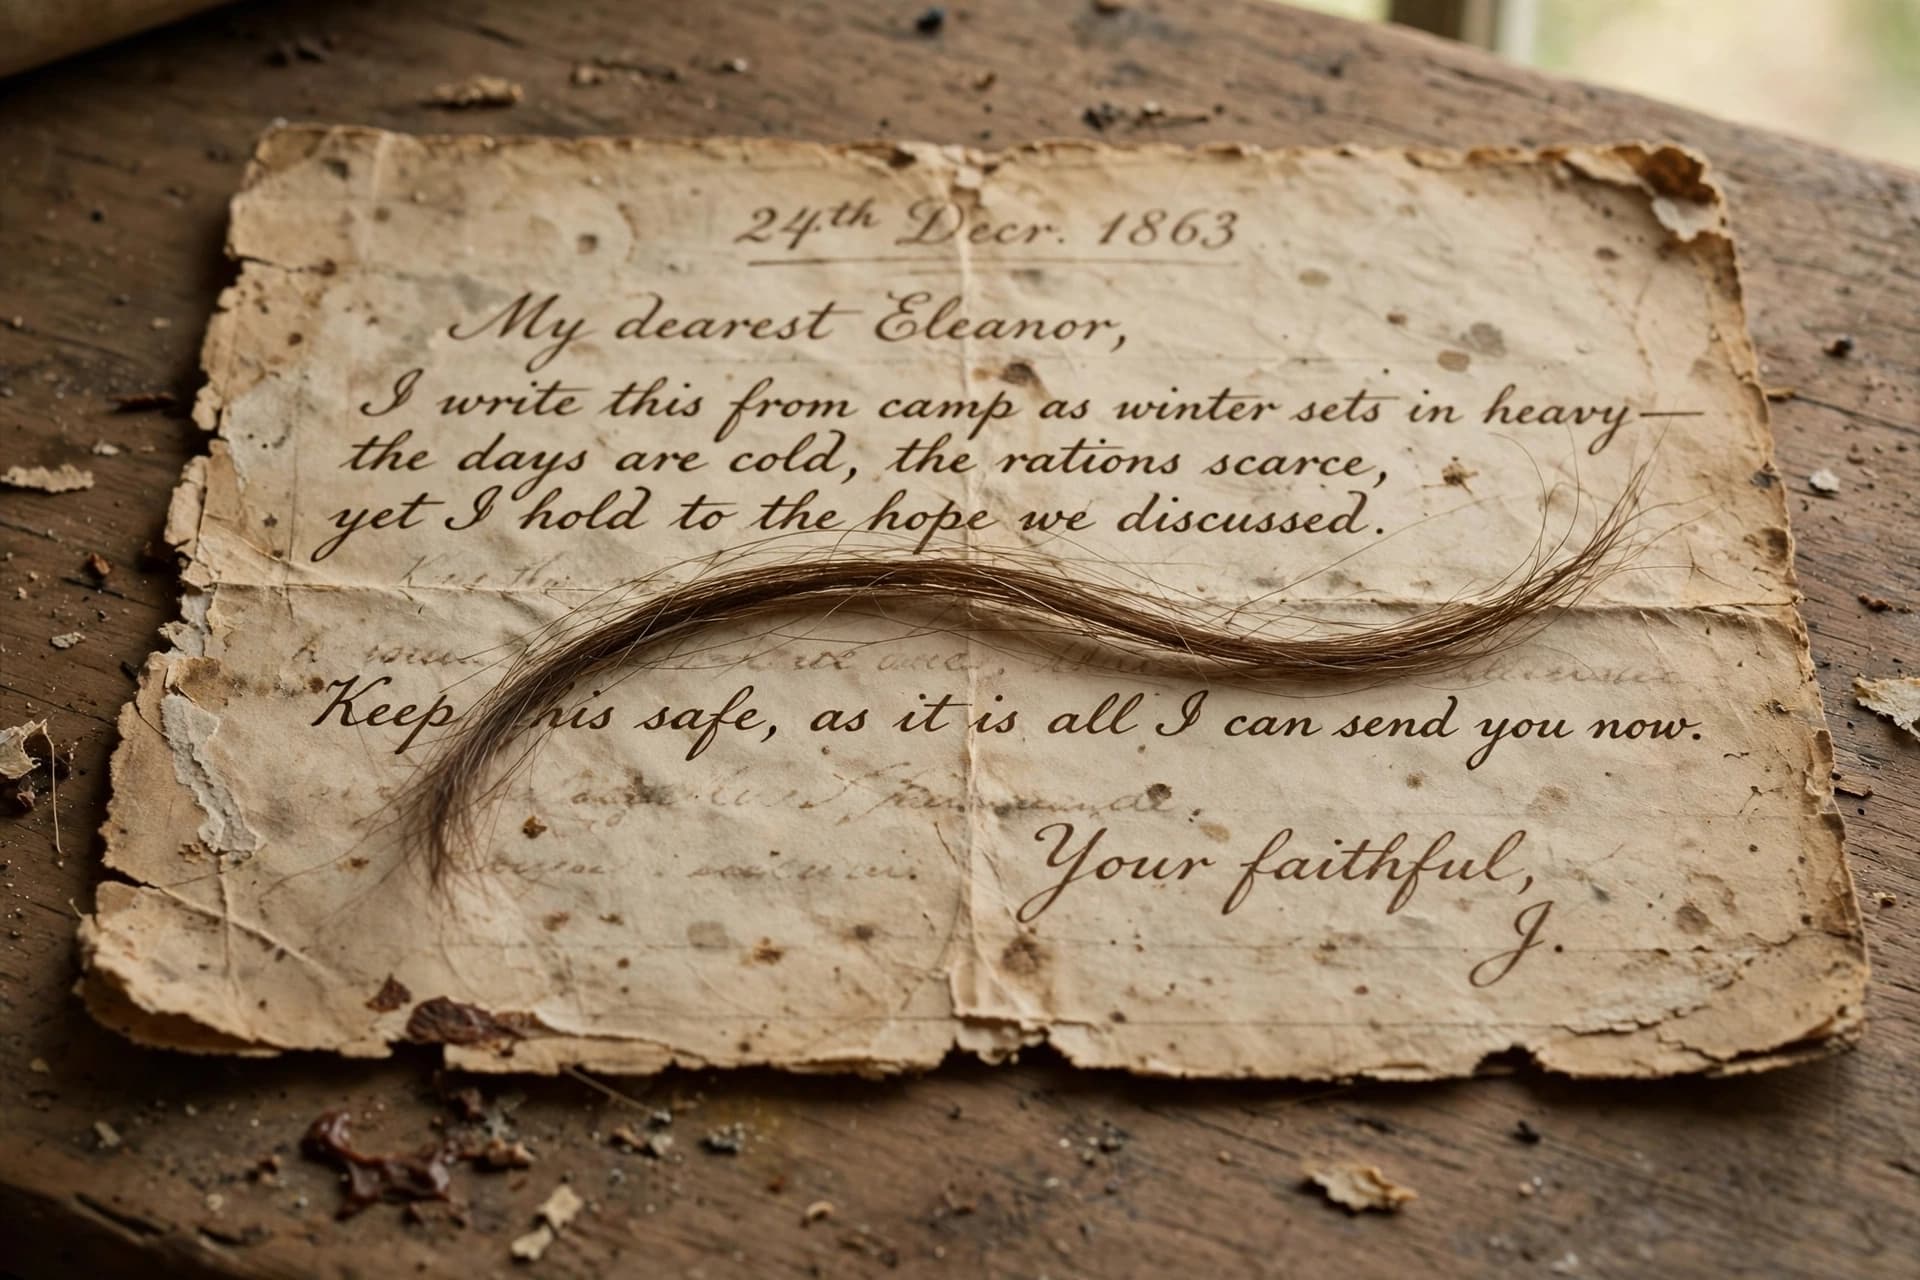 24th Decr. 1863
My dearest Eleanor,
I write this from camp as winter sets in heavy—
the days are cold, the rations scarce,
yet I hold to the hope we discussed.
Keep his safe, as it is all I can send you now.
Your faithful,
J.